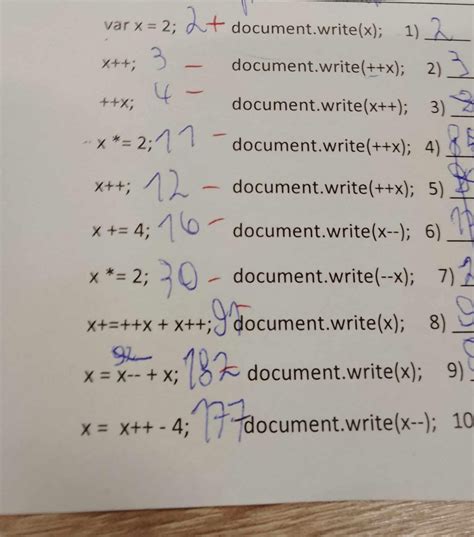 var x = 2; 2+ document.write(x); 1) 2
x++; 3 – document.write(++x); 2) 3
++x; 4 – document.write(x++); 3)
x *= 2; 11 – document.write(++x); 4)
x++; 12 – document.write(++x); 5)
x += 4; 16 – document.write(x--); 6)
x *= 2; 30 – document.write(--x); 7) 2
x+=++x + x++; 91 document.write(x); 8) 9
92
x = x-- + x; 182 – document.write(x); 9)
x = x++ - 4; 177 document.write(x--); 10